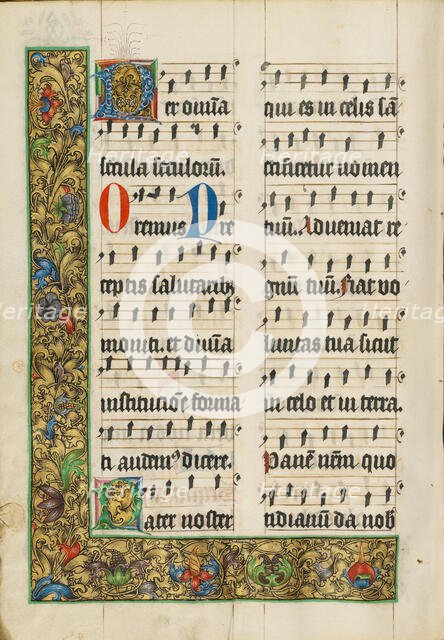 Per omnia
secula seculorum.
Oremus Pre
ceptis salutarib3
moniti. et diuina
institucio͞e forma
ti audem⁹ dicere.
Pater noster
qui es in celis san͞
ctificetur nomen
tuum. Adueniat re
gnu͞m tuum. Fiat vo
luntas tua sicut
in celo et in terra.
Pane͞m n͞em quo
tidianu͞m da nob͞